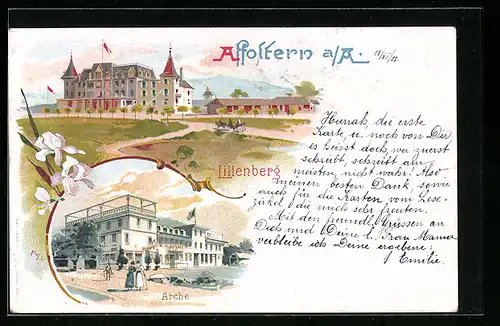 Affoltern a/A.
Lilienberg
Arche
Hurrah, die erste
Karte, u. noch von Dir
es heisst doch, wer zuerst
schreibt, schreibt am
meisten, nicht wahr! Also
meinen besten Dank, sowie
auch für die Karten vom
die mich sehr freuten.
Mit den freundl. Grüssen an
Dich und Deine l. Frau Mama
verbleibe ich Deine ergebene
Emilie.